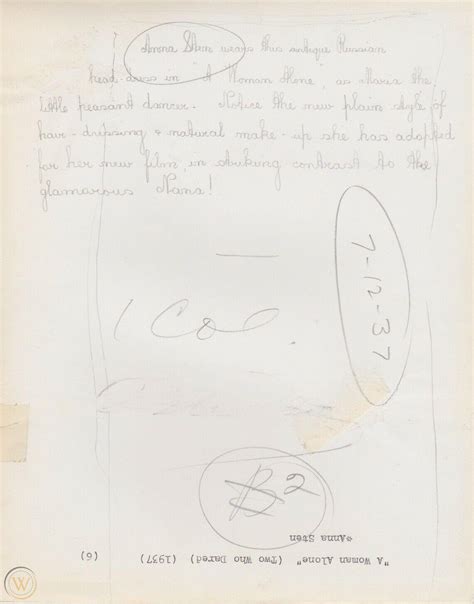 Anna Sten wears this antique Russian
head-dress in "A Woman Alone", as Maria the
little peasant dancer. Notice the new plain style of
hair-dressing & natural make-up she has adopted
for her new film, in striking contrast to the
glamorous Nana!
1 Col.
7-12-37
B2
*Anna Sten
"A Woman Alone" (Two Who Dared) (1937) (6)
W